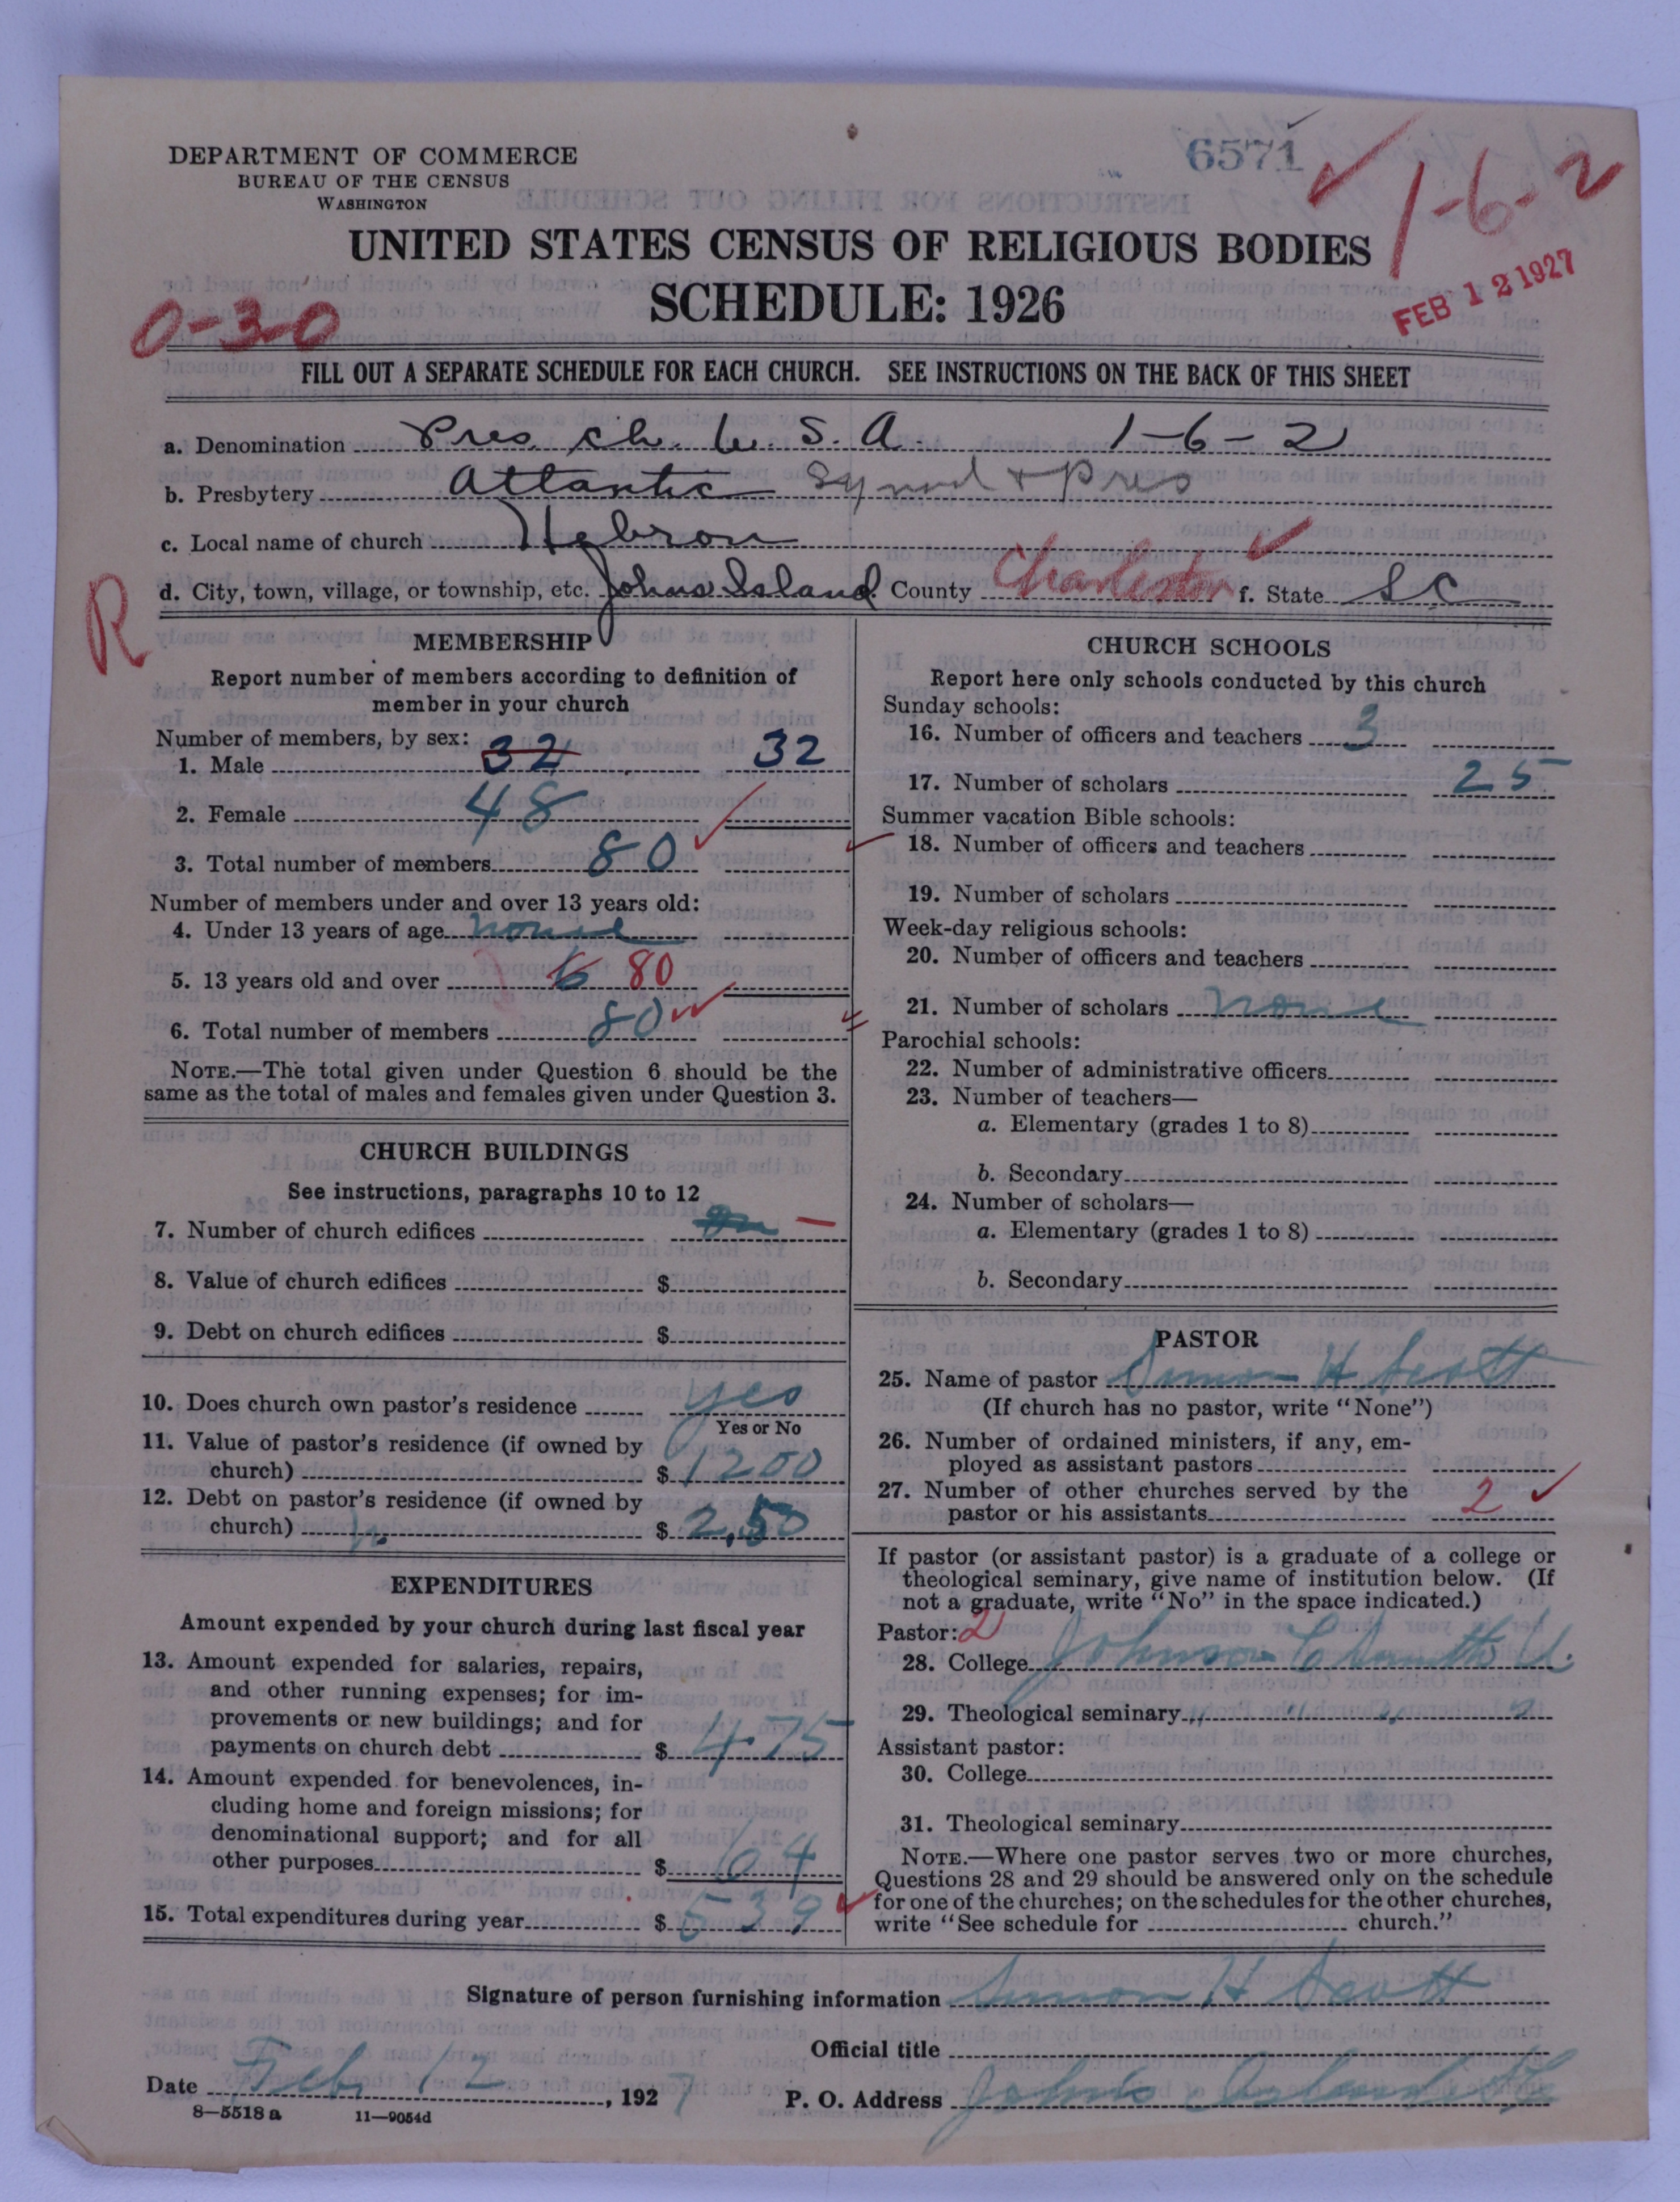 DEPARTMENT OF COMMERCE
BUREAU OF THE CENSUS
WASHINGTON
6571
1-6-2
UNITED STATES CENSUS OF RELIGIOUS BODIES
SCHEDULE: 1926
FEB 12 1927
0-30
FILL OUT A SEPARATE SCHEDULE FOR EACH CHURCH. SEE INSTRUCTIONS ON THE BACK OF THIS SHEET
a. Denomination Pres. ch. U. S. A. 1-6-2
b. Presbytery Atlantic Synod + Pres
c. Local name of church Hebron
d. City, town, village, or township, etc. Johns Island County Charleston f. State S C
R
MEMBERSHIP
Report number of members according to definition of
member in your church
Number of members, by sex:
1. Male 32 32
2. Female 48
3. Total number of members 80
Number of members under and over 13 years old:
4. Under 13 years of age none
5. 13 years old and over 80
6. Total number of members 80
NOTE.—The total given under Question 6 should be the
same as the total of males and females given under Question 3.
CHURCH BUILDINGS
See instructions, paragraphs 10 to 12
7. Number of church edifices —
8. Value of church edifices $
9. Debt on church edifices $
10. Does church own pastor's residence yes
Yes or No
11. Value of pastor's residence (if owned by
church) $ 1200
12. Debt on pastor's residence (if owned by
church) $ 2,50
EXPENDITURES
Amount expended by your church during last fiscal year
13. Amount expended for salaries, repairs,
and other running expenses; for im-
provements or new buildings; and for
payments on church debt $ 475
14. Amount expended for benevolences, in-
cluding home and foreign missions; for
denominational support; and for all
other purposes $ 64
15. Total expenditures during year $ 539
CHURCH SCHOOLS
Report here only schools conducted by this church
Sunday schools:
16. Number of officers and teachers 3
17. Number of scholars 25
Summer vacation Bible schools:
18. Number of officers and teachers
19. Number of scholars
Week-day religious schools:
20. Number of officers and teachers
21. Number of scholars none
Parochial schools:
22. Number of administrative officers
23. Number of teachers—
a. Elementary (grades 1 to 8)
b. Secondary
24. Number of scholars—
a. Elementary (grades 1 to 8)
b. Secondary
PASTOR
25. Name of pastor Simon H. Scott
(If church has no pastor, write "None")
26. Number of ordained ministers, if any, em-
ployed as assistant pastors
27. Number of other churches served by the
pastor or his assistants 2
If pastor (or assistant pastor) is a graduate of a college or
theological seminary, give name of institution below. (If
not a graduate, write "No" in the space indicated.)
Pastor: 2
28. College Johnson C Smith U.
29. Theological seminary " " " "
Assistant pastor:
30. College
31. Theological seminary
NOTE.—Where one pastor serves two or more churches,
Questions 28 and 29 should be answered only on the schedule
for one of the churches; on the schedules for the other churches,
write "See schedule for church."
Signature of person furnishing information Simon H Scott
Official title
Date Feb 12, 1927 P. O. Address Johns Island SC
8—5518 a 11—9054d